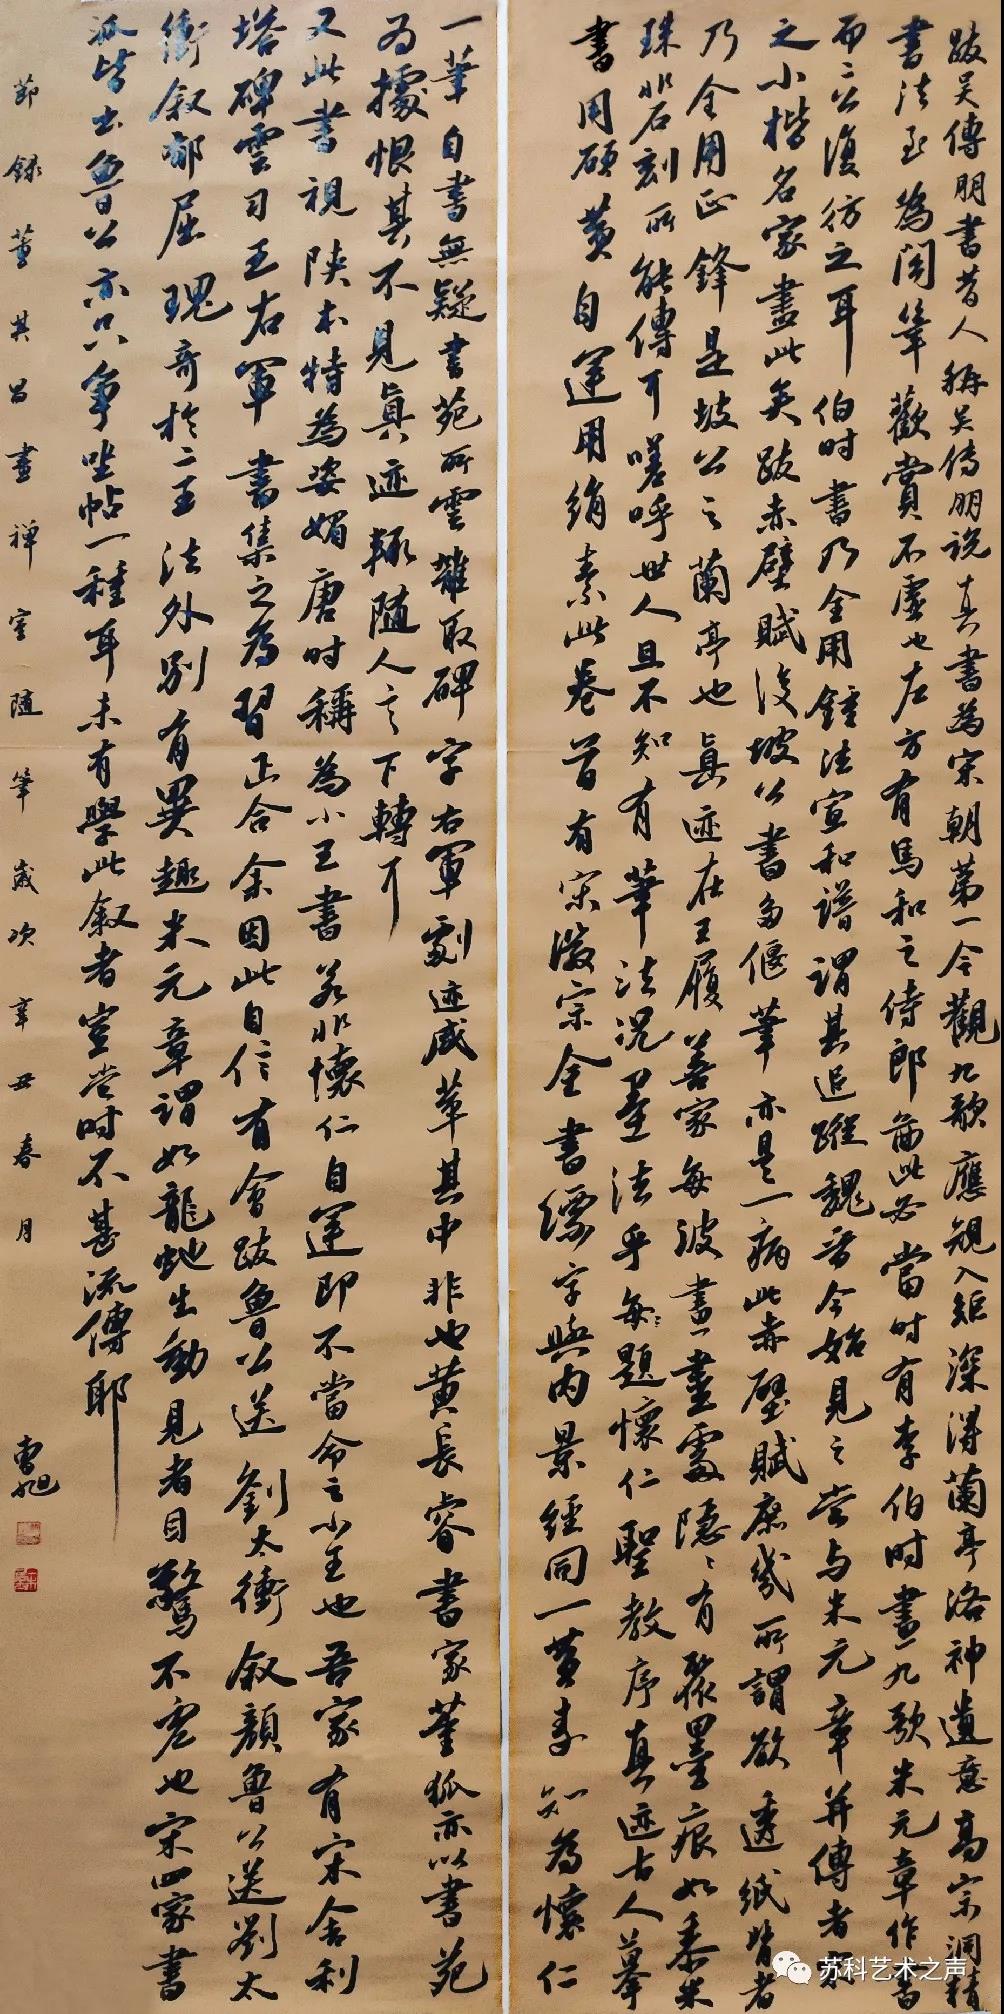 跋吳傳朋書昔人稱吳傅朋說真書為宋朝第一今觀九歌應規入矩深得蘭亭洛神遺意高宗洞精
書法至為閣筆歡賞不虛也左方有馬和之侍郎畵此必當時有李伯時畫九歌米元章作書
而二公復仿之耳伯時書乃全用鍾法宣和譜謂其追蹤魏晉今始見之嘗与米元章並傳者
之小楷名家盡此矣跋赤壁賦後坡公書多偃筆亦是一病此赤壁賦庶幾所謂欲透紙背者
乃全用正鋒是坡公之蘭亭也真迹在王履善家每波畫一盡處隱隱有聚墨痕如黍米
珠非石刻所能傳可嗟呼世人且不知有筆法況墨法乎每每題懷仁聖教序真迹古人摹
書用硬黃自運用絹素此卷首有宋徽宗金書縹字與內景經同一黃素知為懷仁
一筆自書無疑書苑所雲雜取碑字右軍劇迹咸萃其中非也黄長睿書家董狐亦以書苑
為據恨其不見真迹輒隨人言下轉可
又此書視陝本特為姿媚唐时稱為小王書若非懷仁自運即不當命之小王也吾家有宋舍利
塔碑雲习王右軍書集之為習正合余因此自信有會跋魯公送劉太衝叙顏魯公送劉太
衝叙郁屈瑰奇於二王法外別有異趣米元章謂如龍虵生動見者目驚不虛也宋四家書
派皆出魯公亦只争坐帖一種耳未有學此叙者豈當时不甚流傳耶
節録董其昌畫禅室隨筆歲次辛丑春月
曹旭
苏科艺术之声